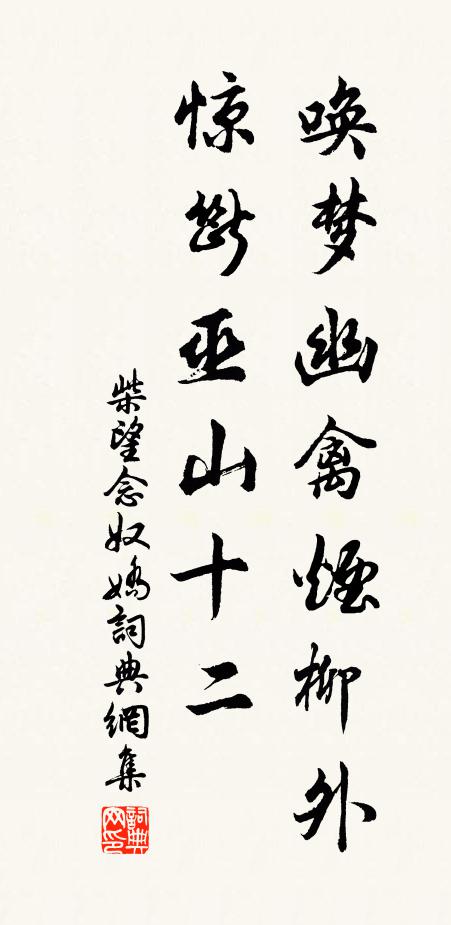 唤梦幽禽烟柳外
惊断巫山十二
柴望念奴娇詞典網集
詞典网印